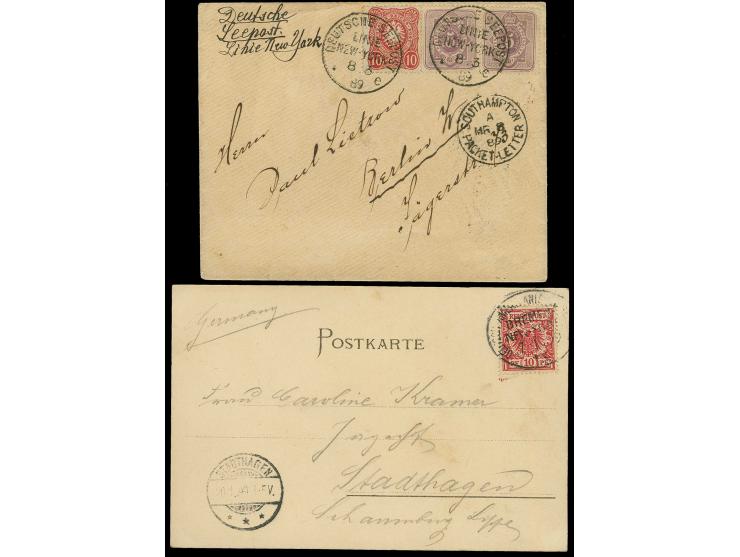 Deutsche
Seepost
Linie New York
DEUTSCHE SEEPOST
LINIE
NEW-YORK
8 3
89
10
DEUTSCHE SEEPOST
LINIE
NEW-YORK
8 3
89
SOUTHAMPTON
A
MR 8
PACKET-LETTER
Herrn
Paul Lietzow
Berlin W.
Jägerstr
Germany
POSTKARTE
BREMEN
10
Frau Caroline Kramer
Stadthagen
Schaumburg Lippe
STADTHAGEN